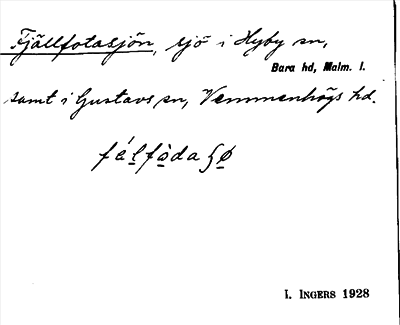 Fjällfotasjön, sjö i Hyby sn,
Bara hd, Malm. l.
samt i Gustavs sn, Vemmenhögs hd.
fálfòdaʂø
I. INGERS 1928